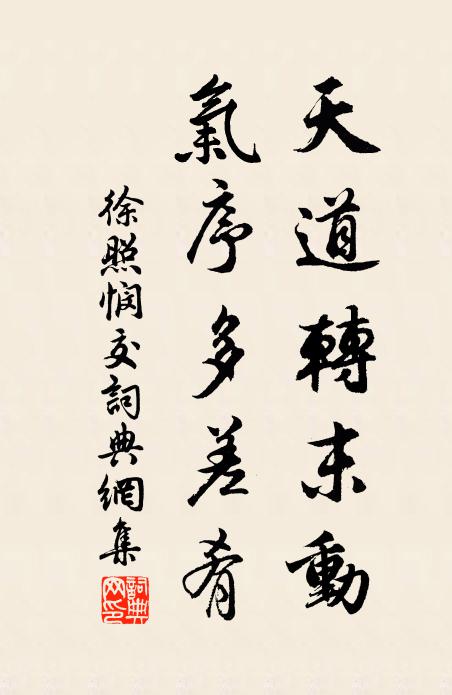 天道轉未動
氣序多差肴
徐照憫交詞典網集
詞典
网印